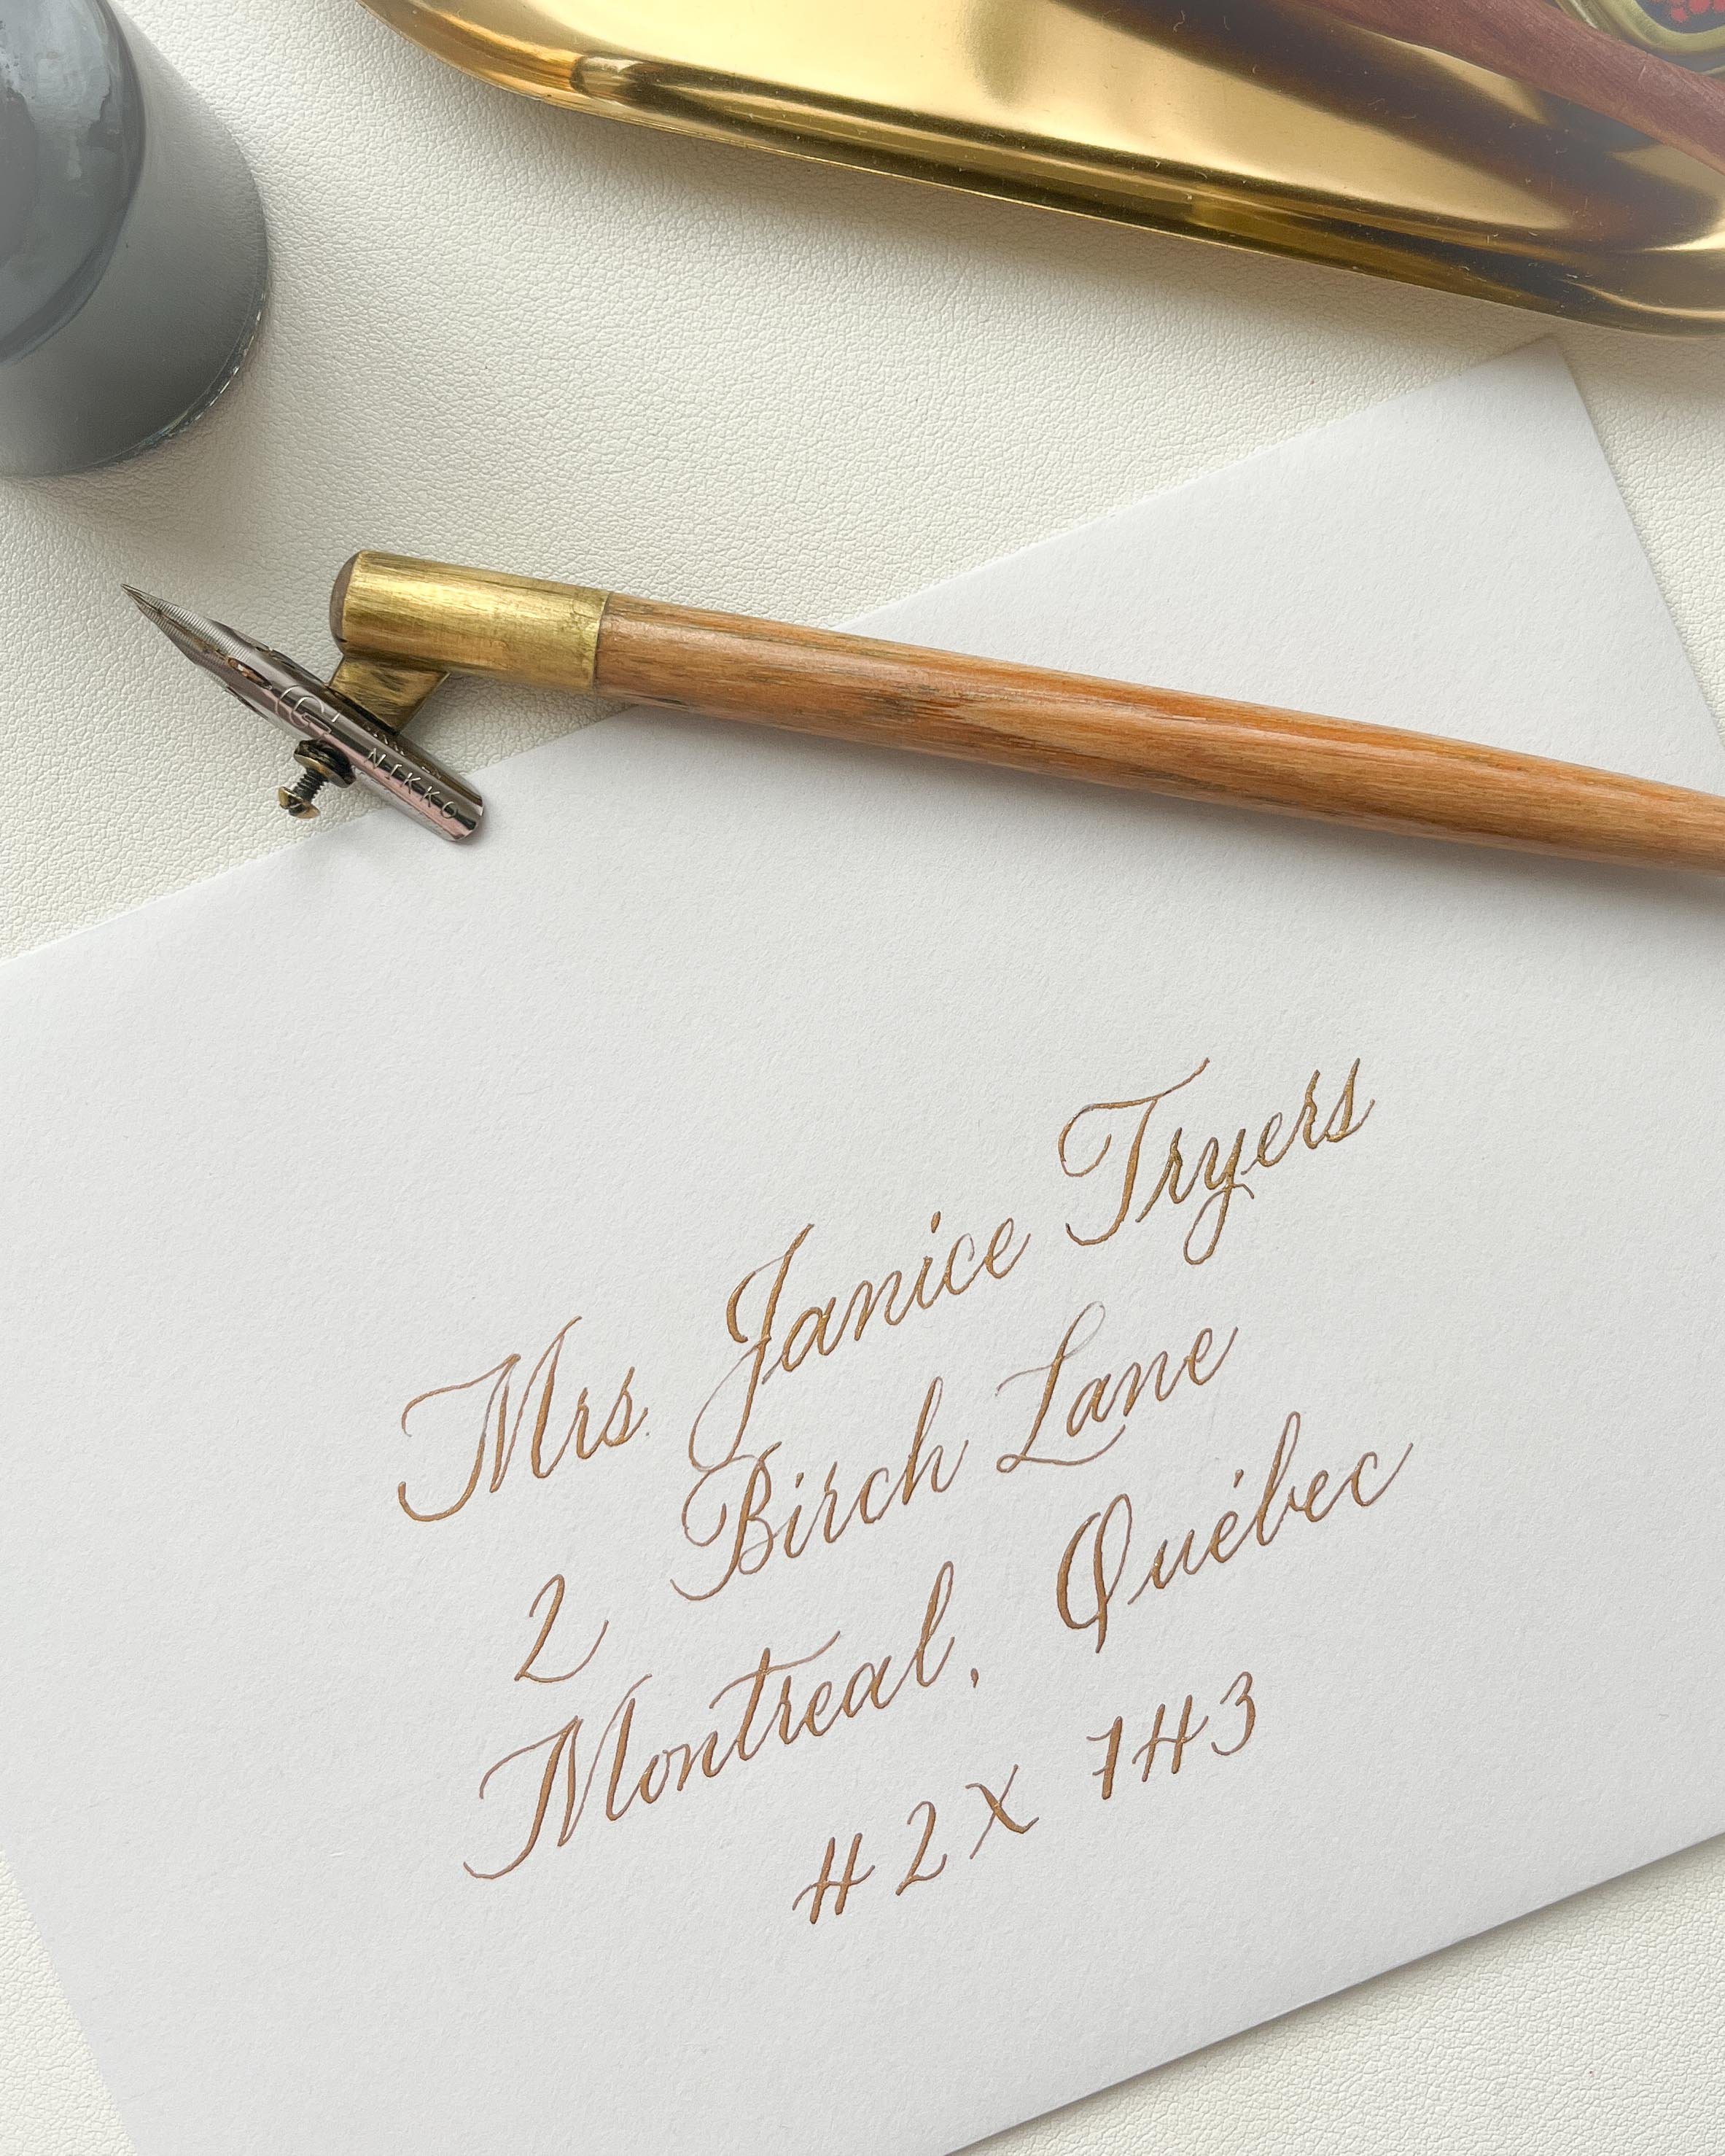 G
NIKKO
Mrs. Janice Tryers
2 Birch Lane
Montreal, Québec
H2X 1H3